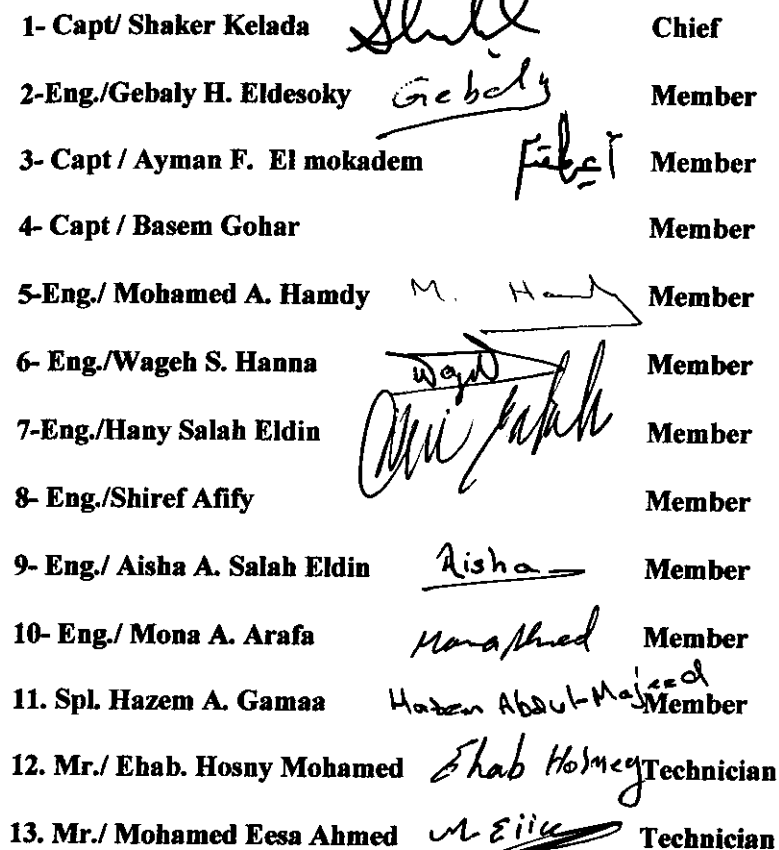 1- Capt/ Shaker Kelada Chief
2-Eng./Gebaly H. Eldesoky Gebaly Member
3- Capt / Ayman F. El mokadem Member
4- Capt / Basem Gohar Member
5-Eng./ Mohamed A. Hamdy M. Hamdy Member
6- Eng./Wageh S. Hanna Member
7-Eng./Hany Salah Eldin Member
8- Eng./Shiref Afify Member
9- Eng./ Aisha A. Salah Eldin Aisha Member
10- Eng./ Mona A. Arafa Mona Ahmed Member
11. Spl. Hazem A. Gamaa Hazem Abdul-Majeed Member
12. Mr./ Ehab. Hosny Mohamed Ehab Hosney Technician
13. Mr./ Mohamed Eesa Ahmed Technician